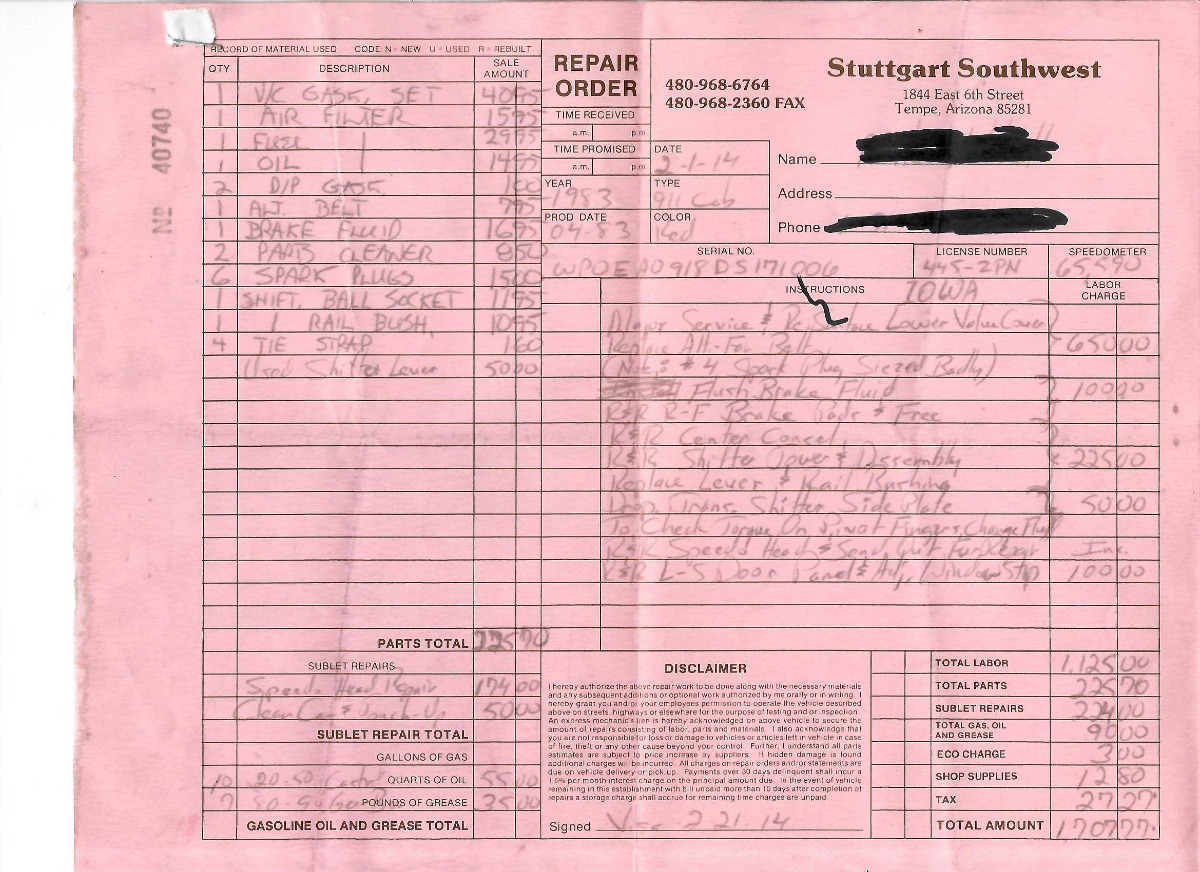 RECORD OF MATERIAL USED CODE: N = NEW U = USED R = REBUILT
QTY DESCRIPTION SALE AMOUNT
1 V/C GASK, SET 4095
1 AIR FILTER 1595
1 FUEL | 2995
1 OIL | 1495
2 D/P GASK 100
1 ALT. BELT 795
1 BRAKE FLUID 1695
2 PARTS CLEANER 850
6 SPARK PLUGS 1500
1 SHIFT. BALL SOCKET 1195
1 | RAIL BUSH, 1095
4 TIE STRAP 160
Used Shifter Lever 5000
PARTS TOTAL 22570
SUBLET REPAIRS
Speedo Head Repair 174 00
Clean Car & Touch-Up 5000
SUBLET REPAIR TOTAL
GALLONS OF GAS
10 20-50 QUARTS OF OIL 55 00
7 80-90 POUNDS OF GREASE 35 00
GASOLINE OIL AND GREASE TOTAL
Nº 40740
REPAIR ORDER
TIME RECEIVED
a.m. p.m.
TIME PROMISED
a.m. p.m.
DATE
2-1-14
YEAR
1983
TYPE
911 Cab
PROD DATE
04-83
COLOR
Red
480-968-6764
480-968-2360 FAX
Stuttgart Southwest
1844 East 6th Street
Tempe, Arizona 85281
Name
Address
Phone
SERIAL NO.
WPOEA0918DS171006
LICENSE NUMBER
445-2PN
IOWA
SPEEDOMETER
65,590
INSTRUCTIONS
LABOR CHARGE
Major Service & Lower Valve Cover
Replace Alt.-Fan Belt 65000
(Note: #4 Spark Plug Siezed Badly)
Flush Brake Fluid 10000
R&R R-F Brake Pads & Free
R&R Center Consel,
R&R Shifter Tower & Assembly 22500
Replace Lever & Rail Bushing
Drop Trans. Shifter Side Plate 5000
To Check Torque On Pivot Fingers, Change Fluid
R&R Speedo Head & Send Out For Repair Inc.
R&R L-S Door Panel & Adj, Window Stop 10000
DISCLAIMER
I hereby authorize the above repair work to be done along with the necessary materials
and any subsequent additions or optional work authorized by me orally or in writing. I
hereby grant you and/or your employees permission to operate the vehicle described
above on streets, highways or elsewhere for the purpose of testing and/or inspection.
An express mechanic's lien is hereby acknowledged on above vehicle to secure the
amount of repairs consisting of labor, parts and materials. I also acknowledge that
you are not responsible for loss or damage to vehicles or articles left in vehicle in case
of fire, theft or any other cause beyond your control. Further, I understand all parts
estimates are subject to price increase by suppliers. If hidden damage is found
additional charges will be incurred. All charges on repair orders and/or statements are
due on vehicle delivery or pick up. Payments over 30 days delinquent shall incur a
1.5% per month interest charge on the principal amount due. In the event of vehicle
remaining in this establishment with bill unpaid more than 10 days after completion of
repairs a storage charge shall accrue for remaining time charges are unpaid.
Signed Visa 2-21-14
TOTAL LABOR 1,125 00
TOTAL PARTS 22570
SUBLET REPAIRS 22400
TOTAL GAS, OIL AND GREASE 9000
ECO CHARGE 300
SHOP SUPPLIES 1280
TAX 2727
TOTAL AMOUNT 170777